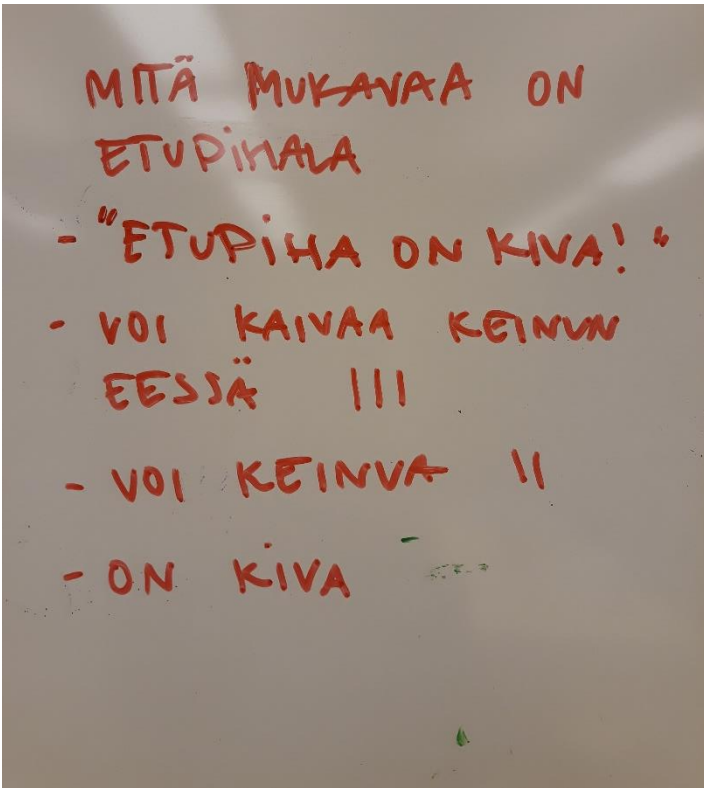 MITÄ MUKAVAA ON
ETUPIHALA
- "ETUPIHA ON KIVA!"
- VOI KAIVAA KEINUN
EESSÄ |||
- VOI KEINUA ||
- ON KIVA